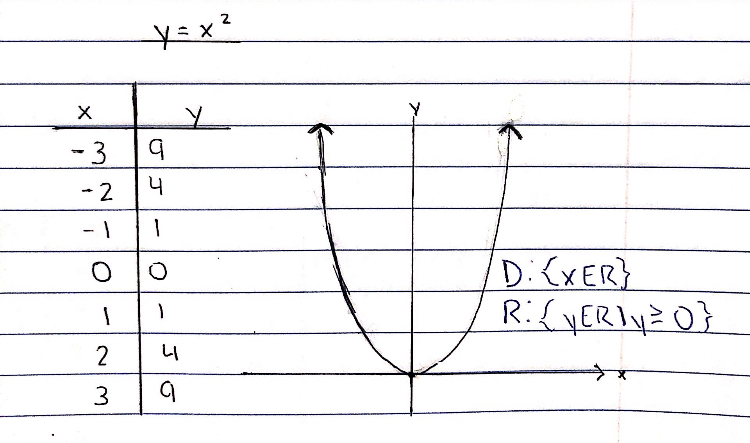 y = x²
x y
-3 9
-2 4
-1 1
0 0
1 1
2 4
3 9
y
D: {xER}
R: {yER | y ≥ 0}
x